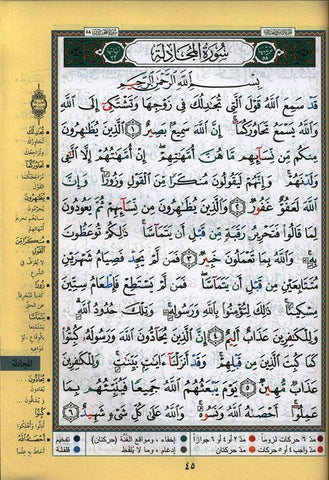 سُورَةُ المُجَادلَة
بِسْمِ اللَّهِ الرَّحْمَٰنِ الرَّحِيمِ
قَدْ سَمِعَ اللَّهُ قَوْلَ الَّتِي تُجَادِلُكَ فِي زَوْجِهَا وَتَشْتَكِي إِلَى اللَّهِ
وَاللَّهُ يَسْمَعُ تَحَاوُرَكُمَا إِنَّ اللَّهَ سَمِيعٌ بَصِيرٌ ١ الَّذِينَ يُظَاهِرُونَ
مِنكُم مِّن نِّسَائِهِم مَّا هُنَّ أُمَّهَاتِهِمْ إِنْ أُمَّهَاتُهُمْ إِلَّا الَّائِي
وَلَدْنَهُمْ وَإِنَّهُمْ لَيَقُولُونَ مُنكَرًا مِّنَ الْقَوْلِ وَزُورًا وَإِنَّ
اللَّهَ لَعَفُوٌّ غَفُورٌ ٢ وَالَّذِينَ يُظَاهِرُونَ مِن نِّسَائِهِمْ ثُمَّ يَعُودُونَ
لِمَا قَالُوا فَتَحْرِيرُ رَقَبَةٍ مِّن قَبْلِ أَن يَتَمَاسَّا ذَٰلِكُمْ تُوعَظُونَ
بِهِ وَاللَّهُ بِمَا تَعْمَلُونَ خَبِيرٌ ٣ فَمَن لَّمْ يَجِدْ فَصِيَامُ شَهْرَيْنِ
مُتَتَابِعَيْنِ مِن قَبْلِ أَن يَتَمَاسَّا فَمَن لَّمْ يَسْتَطِعْ فَإِطْعَامُ سِتِّينَ
مِسْكِينًا ذَٰلِكَ لِتُؤْمِنُوا بِاللَّهِ وَرَسُولِهِ وَتِلْكَ حُدُودُ اللَّهِ
وَلِلْكَافِرِينَ عَذَابٌ أَلِيمٌ ٤ إِنَّ الَّذِينَ يُحَادُّونَ اللَّهَ وَرَسُولَهُ كُبِتُوا
كَمَا كُبِتَ الَّذِينَ مِن قَبْلِهِمْ وَقَدْ أَنزَلْنَا آيَاتٍ بَيِّنَاتٍ وَلِلْكَافِرِينَ
عَذَابٌ مُّهِينٌ ٥ يَوْمَ يَبْعَثُهُمُ اللَّهُ جَمِيعًا فَيُنَبِّئُهُم بِمَا
عَمِلُوا أَحْصَاهُ اللَّهُ وَنَسُوهُ وَاللَّهُ عَلَىٰ كُلِّ شَيْءٍ شَهِيدٌ ٦
تُجَادِلُكَ
تَحَاوُرَكُمَا
يُظَاهِرُونَ
مُنكَرًا مِّنَ
الْقَوْلِ
زُورًا
يَتَمَاسَّا
المجادلة
يُحَادُّونَ
كُبِتُوا
أَحْصَاهُ اللَّهُ
مدّ ٦ حركات لزوماً مدّ ٢ أو ٤ أو ٦ جوازاً إخفاء، ومواقع الغُنَّة (حركتان) تفخيم
مدّ واجب ٤ أو ٥ حركات مدّ حركتان إدغام، وما لا يُلفَظ قلقلة
٤٥